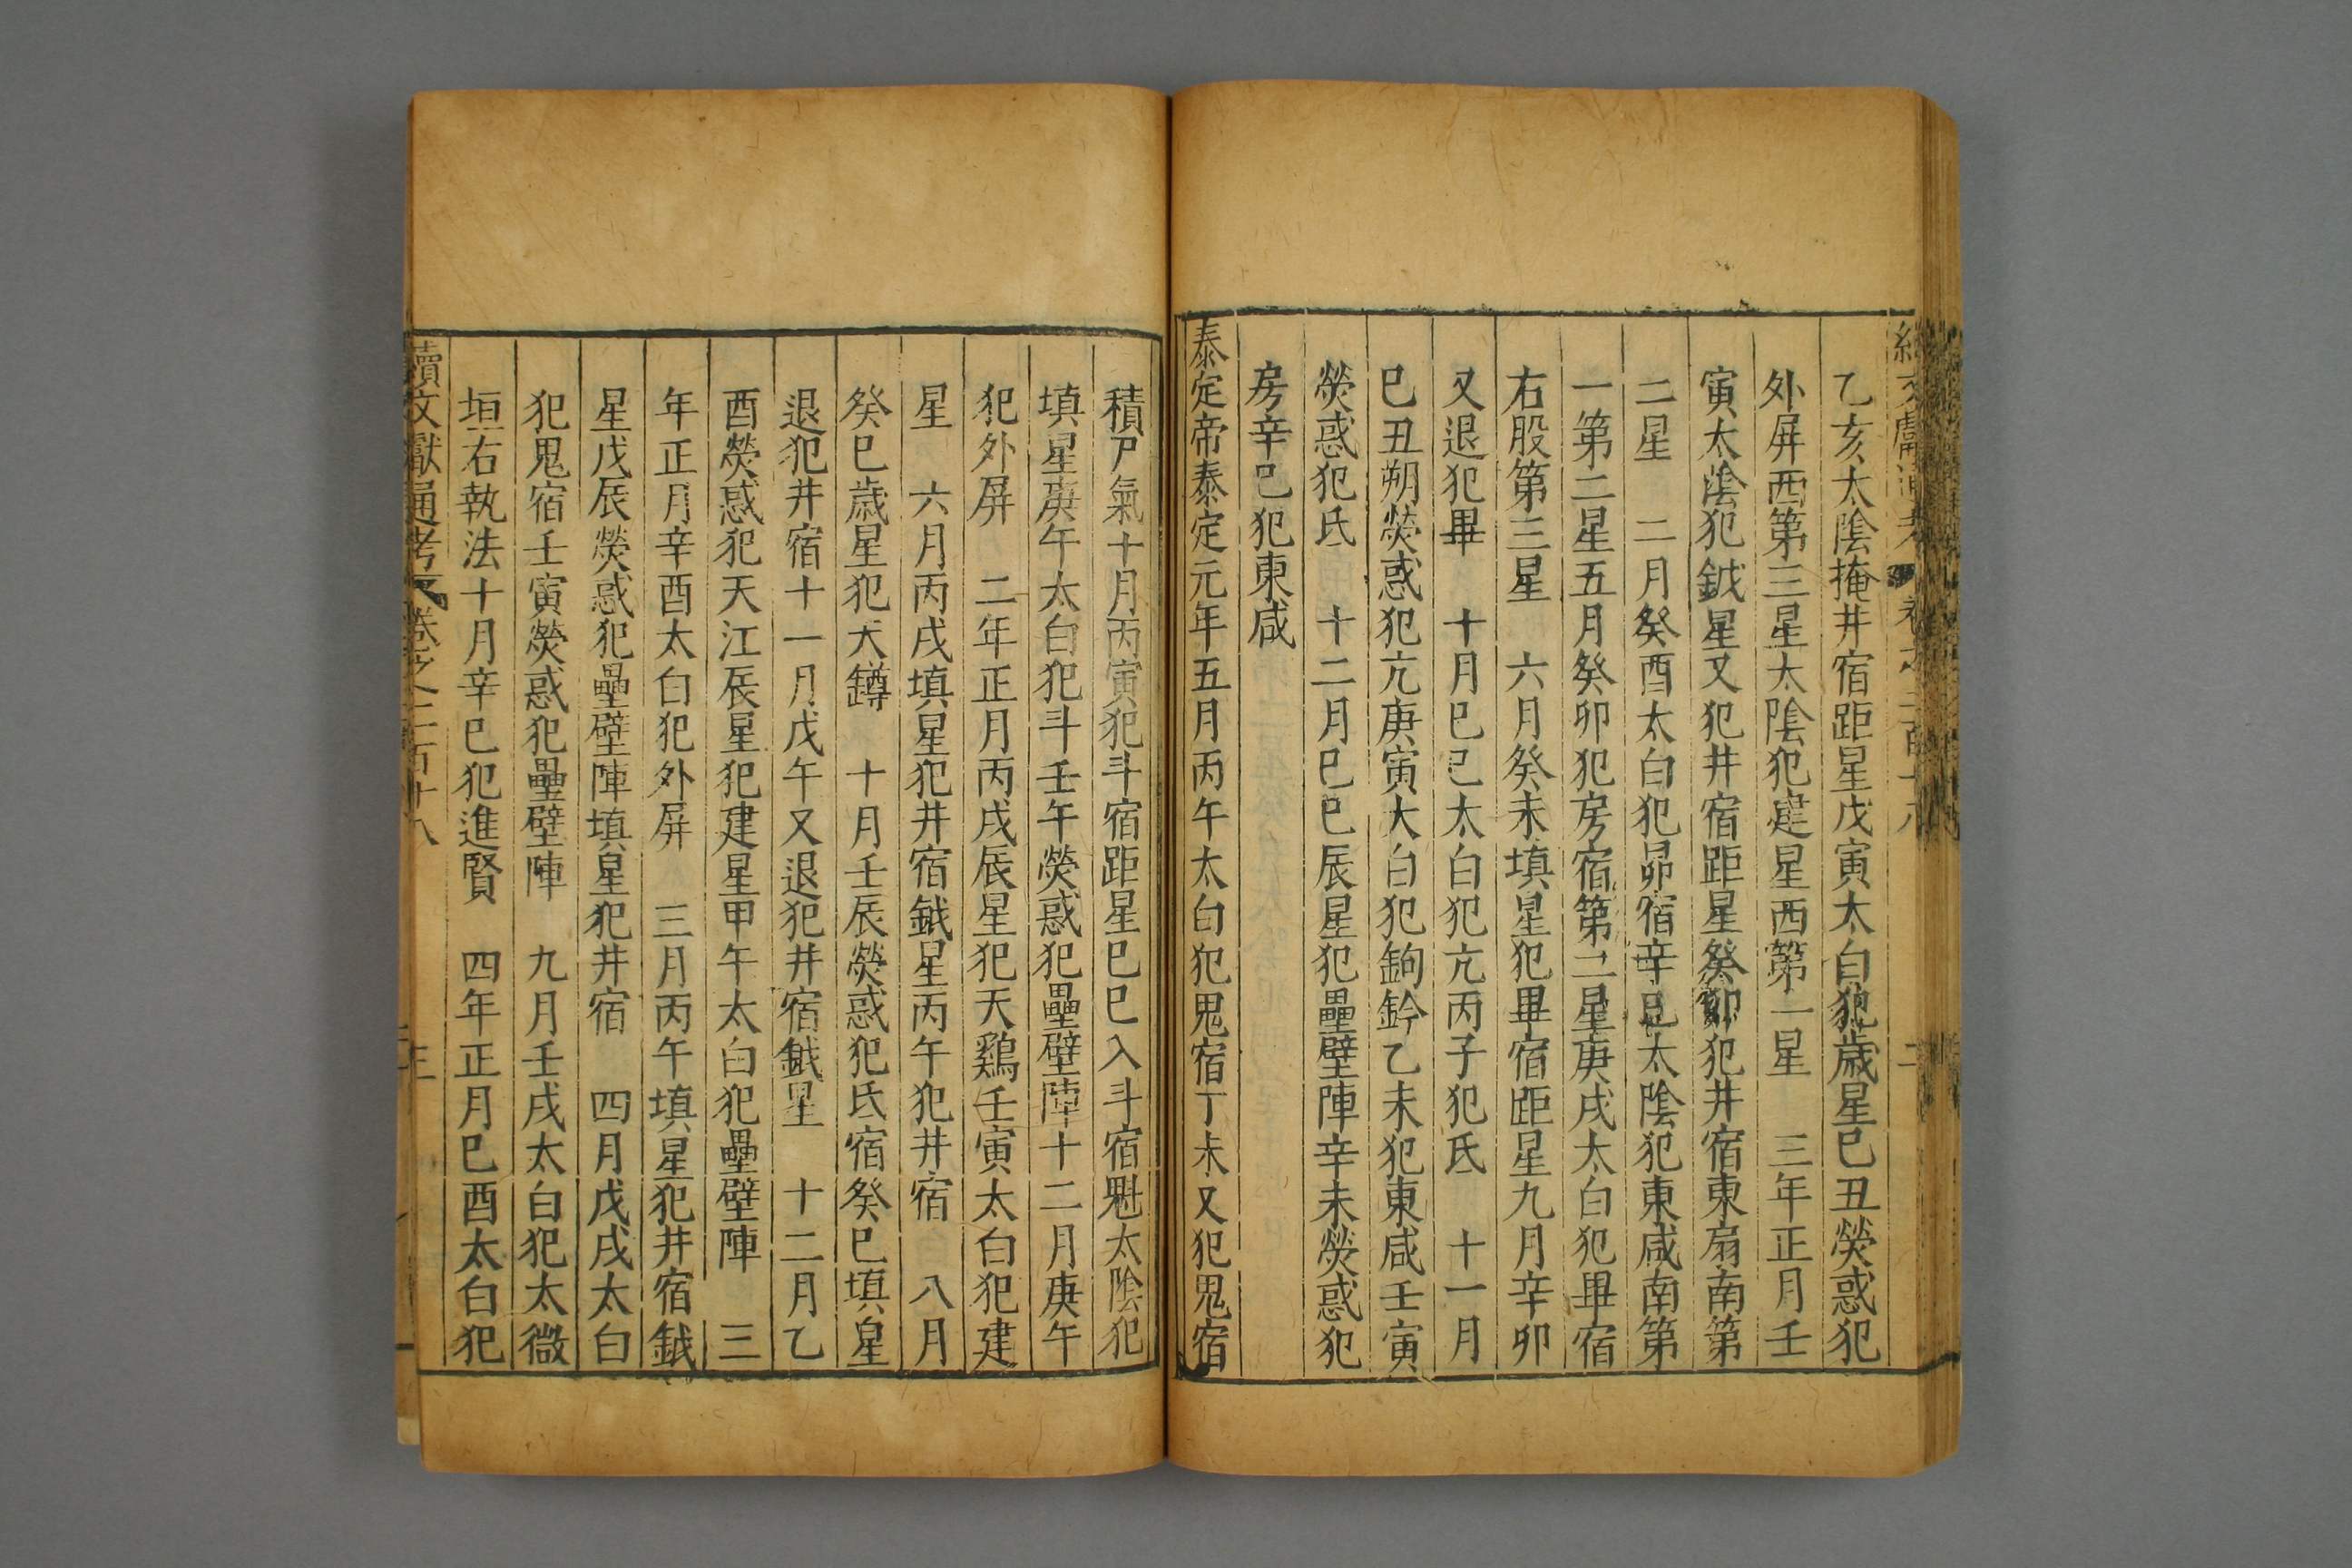 乙亥太陰掩井宿距星戊寅太白犯歲星巳丑熒惑犯
外屏西第三星太陰犯建星西第一星　三年正月壬
寅太陰犯鉞星又犯井宿距星癸卯犯井宿東扇南第
二星　二月癸酉太白犯昴宿辛巳太陰犯東咸南第
一第二星五月癸卯犯房宿第二星庚戌太白犯畢宿
右股第三星　六月癸未填星犯畢宿距星九月辛卯
又退犯畢　十月巳巳太白犯亢丙子犯氐　十一月
巳丑朔熒惑犯亢庚寅太白犯鉤鈐乙未犯東咸壬寅
熒惑犯氐　十二月巳巳辰星犯壘壁陣辛未熒惑犯
房辛巳犯東咸
泰定帝泰定元年五月丙午太白犯鬼宿丁未又犯鬼宿
積尸氣十月丙寅犯斗宿距星巳巳入斗宿魁太陰犯
填星庚午太白犯斗壬午熒惑犯壘壁陣十二月庚午
犯外屏　二年正月丙戌辰星犯天鷄壬寅太白犯建
星　六月丙戌填星犯井宿鉞星丙午犯井宿　八月
癸巳歲星犯天鐏　十月壬辰熒惑犯氐宿癸巳填星
退犯井宿十一月戊午又退犯井宿鉞星　十二月乙
酉熒惑犯天江辰星犯建星甲午太白犯壘壁陣　三
年正月辛酉太白犯外屏　三月丙午填星犯井宿鉞
星戊辰熒惑犯壘壁陣填星犯井宿　四月戊戌太白
犯鬼宿壬寅熒惑犯壘壁陣　九月壬戌太白犯太微
垣右執法十月辛巳犯進賢　四年正月巳酉太白犯
續文獻通考　卷之二百十八　三